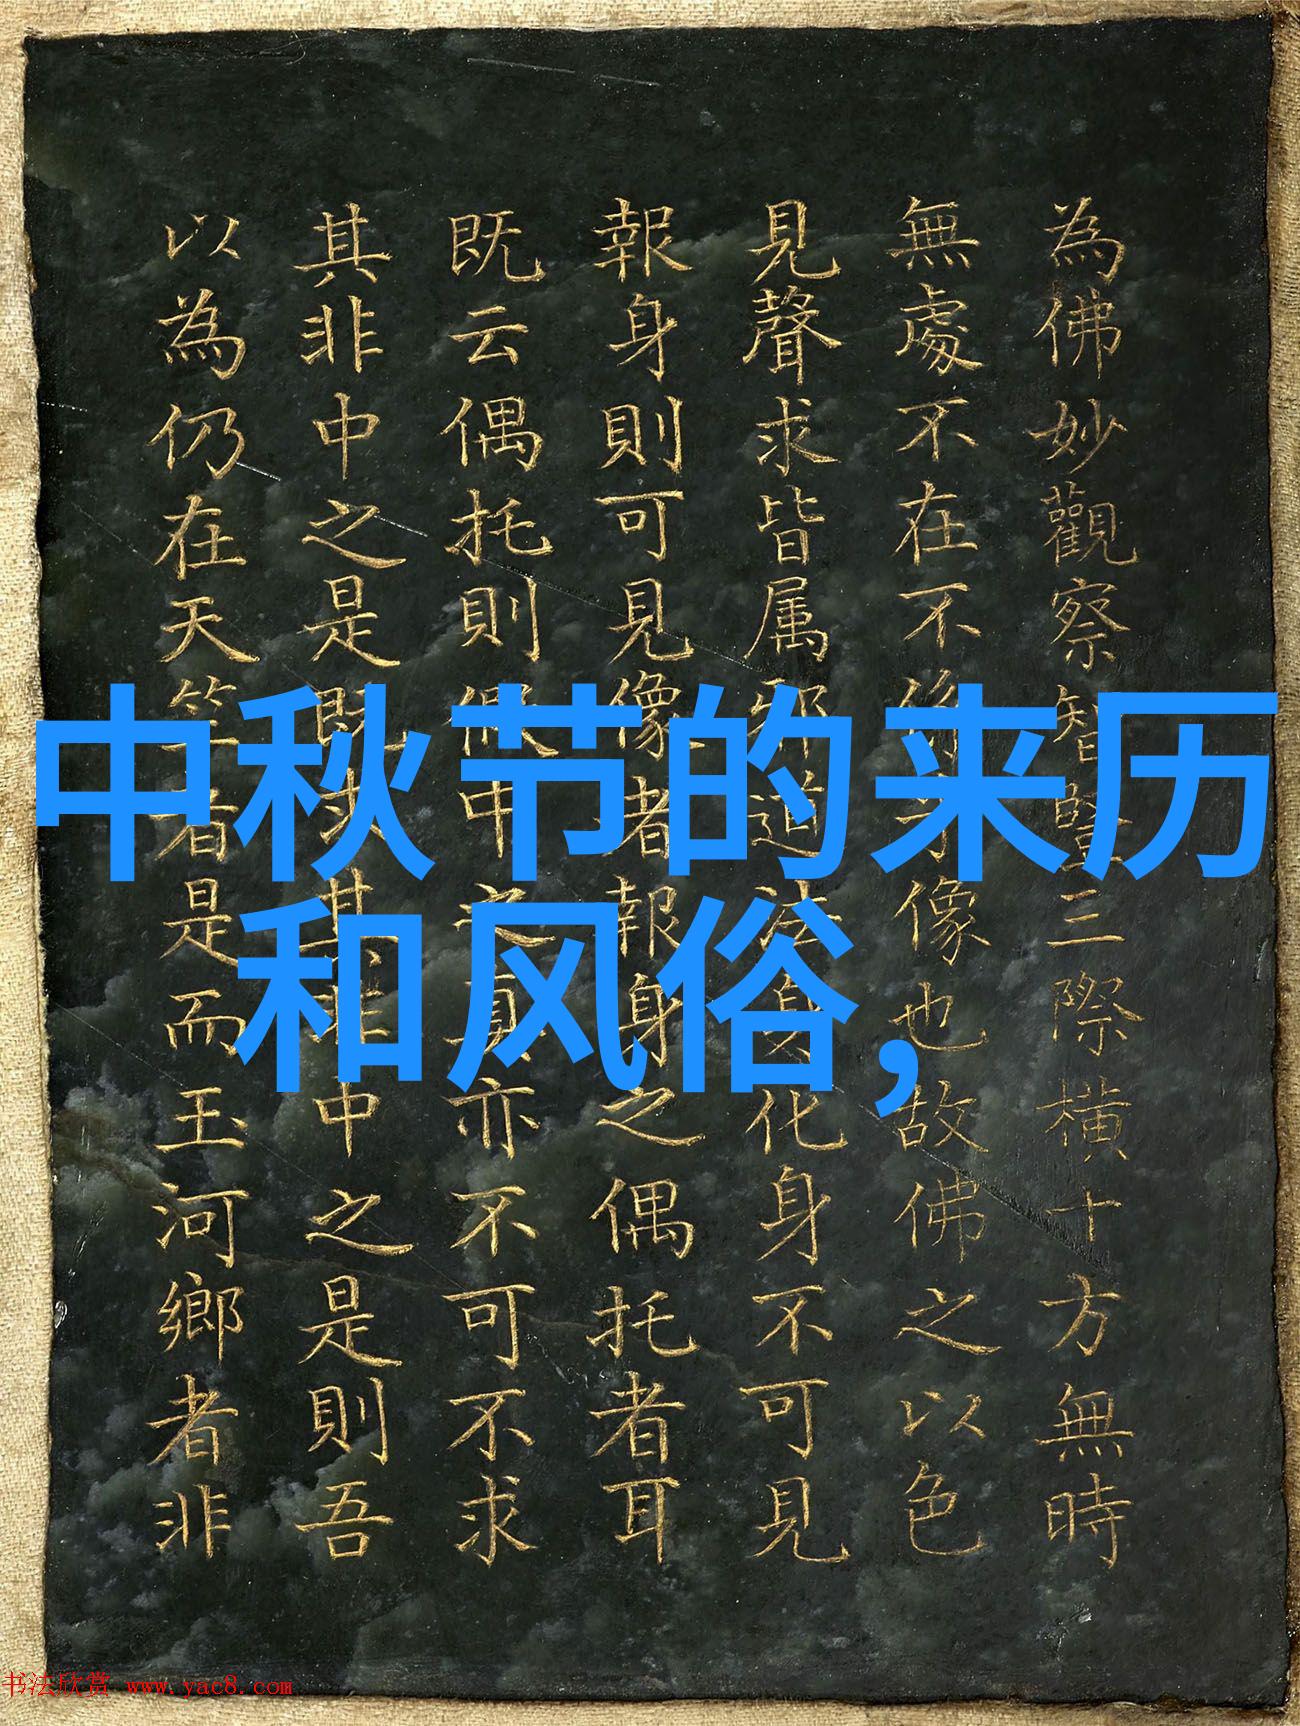 為佛妙觀察智豎三際横十方無時
無處不在不像也故佛之以色
見聲求皆属邪道法身化身不可見
報身則可見像者報身之偶托者耳
既云偶托則假中之真亦不可不求
其非中之是既求其非中之是則吾
以為仍在天竺者是而玉河鄉者非
中秋节的来历
和风俗,
书法欣赏 www.yac8.com